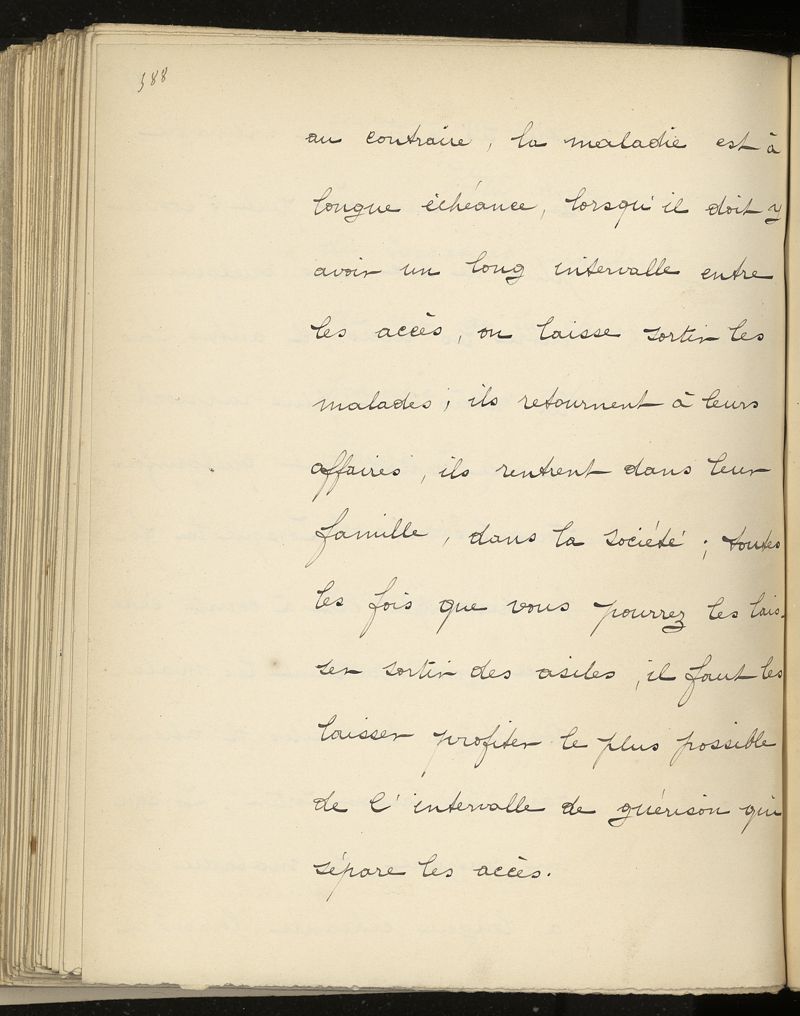 588
au contraire, la maladie est à
longue échéance, lorsqu'il doit y
avoir un long intervalle entre
les accès, on laisse sortir les
malades ; ils retournent à leurs
affaires, ils rentrent dans leur
famille, dans la société ; toutes
les fois que vous pourrez les lais-
ser sortir des asiles, il faut les
laisser profiter le plus possible
de l'intervalle de guérison qui
sépare les accès.